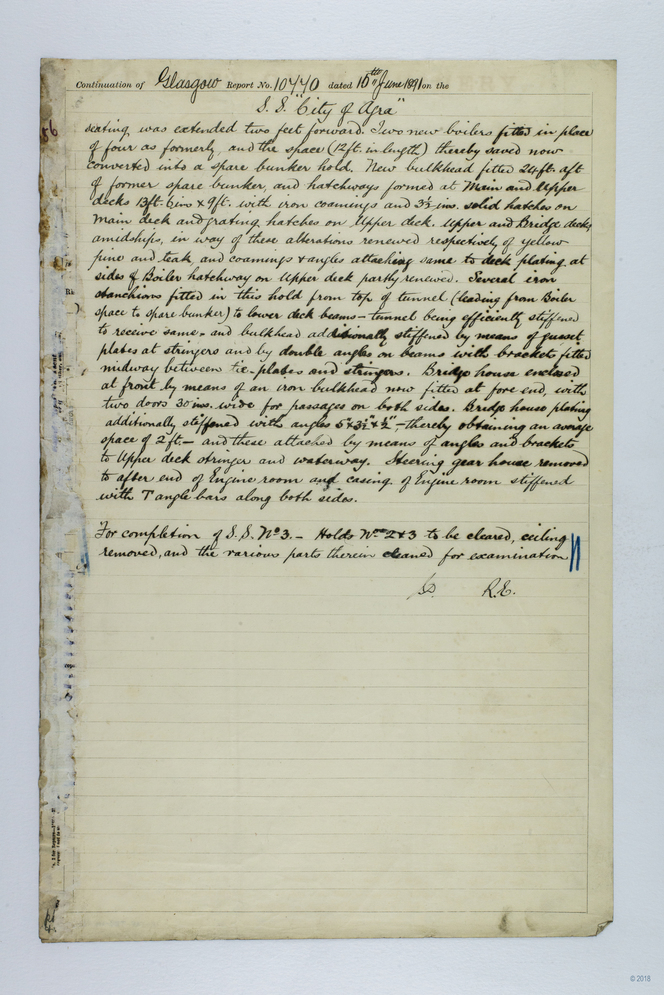 Continuation of Glasgow Report No. 10440 dated 10th June 1891 on the
S.S. "City of Agra"
seating was extended two feet forward. Two new boilers fitted in place
of four as formerly, and the space (12ft. in length) thereby saved now
converted into a spare bunker hold. New bulkhead fitted 24ft. aft
of former spare bunker, and hatchways formed at Main and Upper
decks 13ft. 6ins x 9ft. with iron coamings and 3½ ins. solid hatches on
main deck and grating hatches on Upper deck. Upper and Bridge decks
amidships, in way of these alterations renewed respectively of yellow
pine and teak, and coamings & angles attaching same to deck plating at
sides of Boiler hatchway on Upper deck partly renewed. Several iron
stanchions fitted in this hold from top of tunnel (leading from Boiler
space to spare bunker) to lower deck beams - tunnel being efficiently stiffened
to receive same - and bulkhead additionally stiffened by means of gusset
plates at stringers and by double angles on beams with brackets fitted
midway between tie-plates and stringers. Bridge house enclosed
at front by means of an iron bulkhead now fitted at fore end, with
two doors 30 ins. wide for passages on both sides. Bridge house plating
additionally stiffened with angles 5" x 3½" x ½" - thereby obtaining an average
space of 2 ft - and these attached by means of angles and brackets
to Upper deck stringer and waterway. Steering gear house removed
to after end of Engine room and casing of Engine room stiffened
with T angle bars along both sides.
For completion of S.S. No 3. - Holds Nos 2 & 3 to be cleared, ceiling
removed, and the various parts therein cleaned for examination
R.E.
© 2018